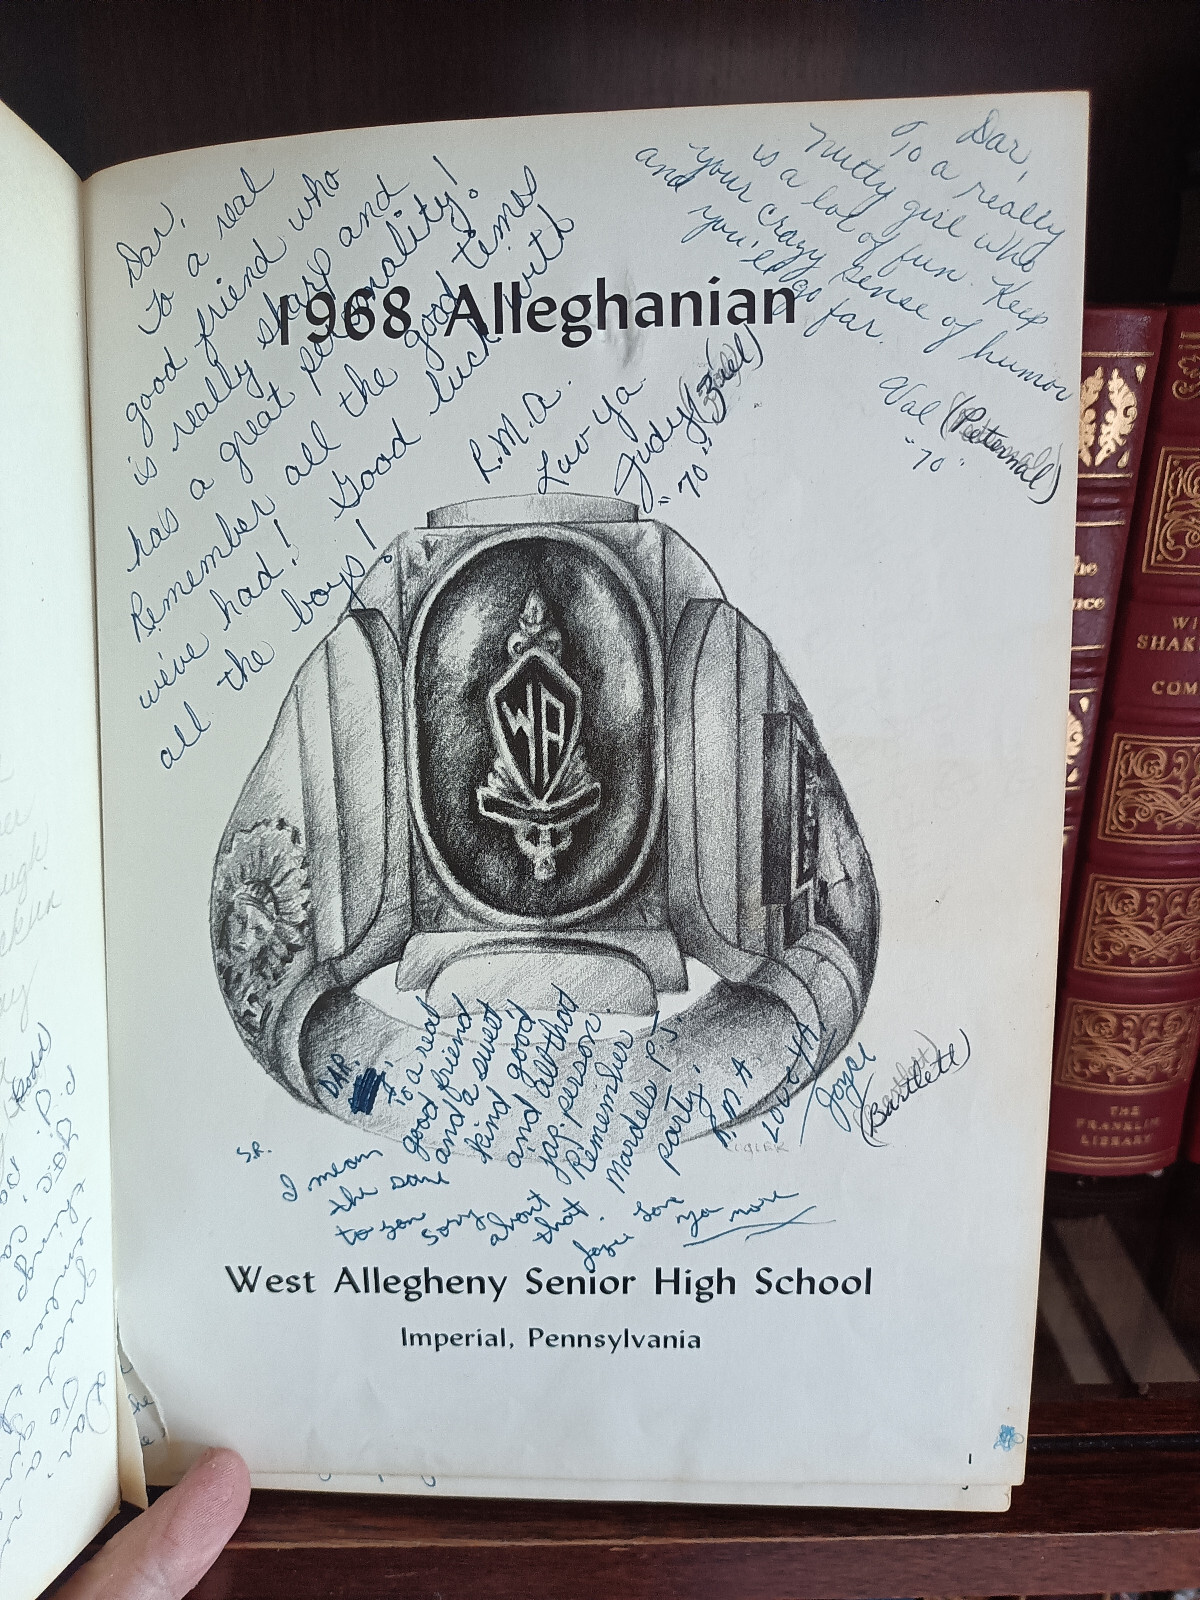 Dar,
To a real
good friend who
is really sharp and
has a great personality!
Remember all the good times
we've had! Good luck with
all the boys!
R.M.A.
Luv ya
Judy
"70"
Dar,
To a really
nutty girl who
is a lot of fun. Keep
your crazy sense of humor
and you'll go far.
Val (Peternal)
"70"
1968 Alleghanian
WA
DAR,
To a real
good friend
and a sweet
kind good
and all that
jaz person
Remember
Mardels PJ
party.
R.M.A.
Luv YA
Joyce
(Bartlett)
I mean
the same
to you
sorry
about
that.
Love
ya more
West Allegheny Senior High School
Imperial, Pennsylvania
1
WI
SHAK
COM
THE
FRANKLIN
LIBRARY